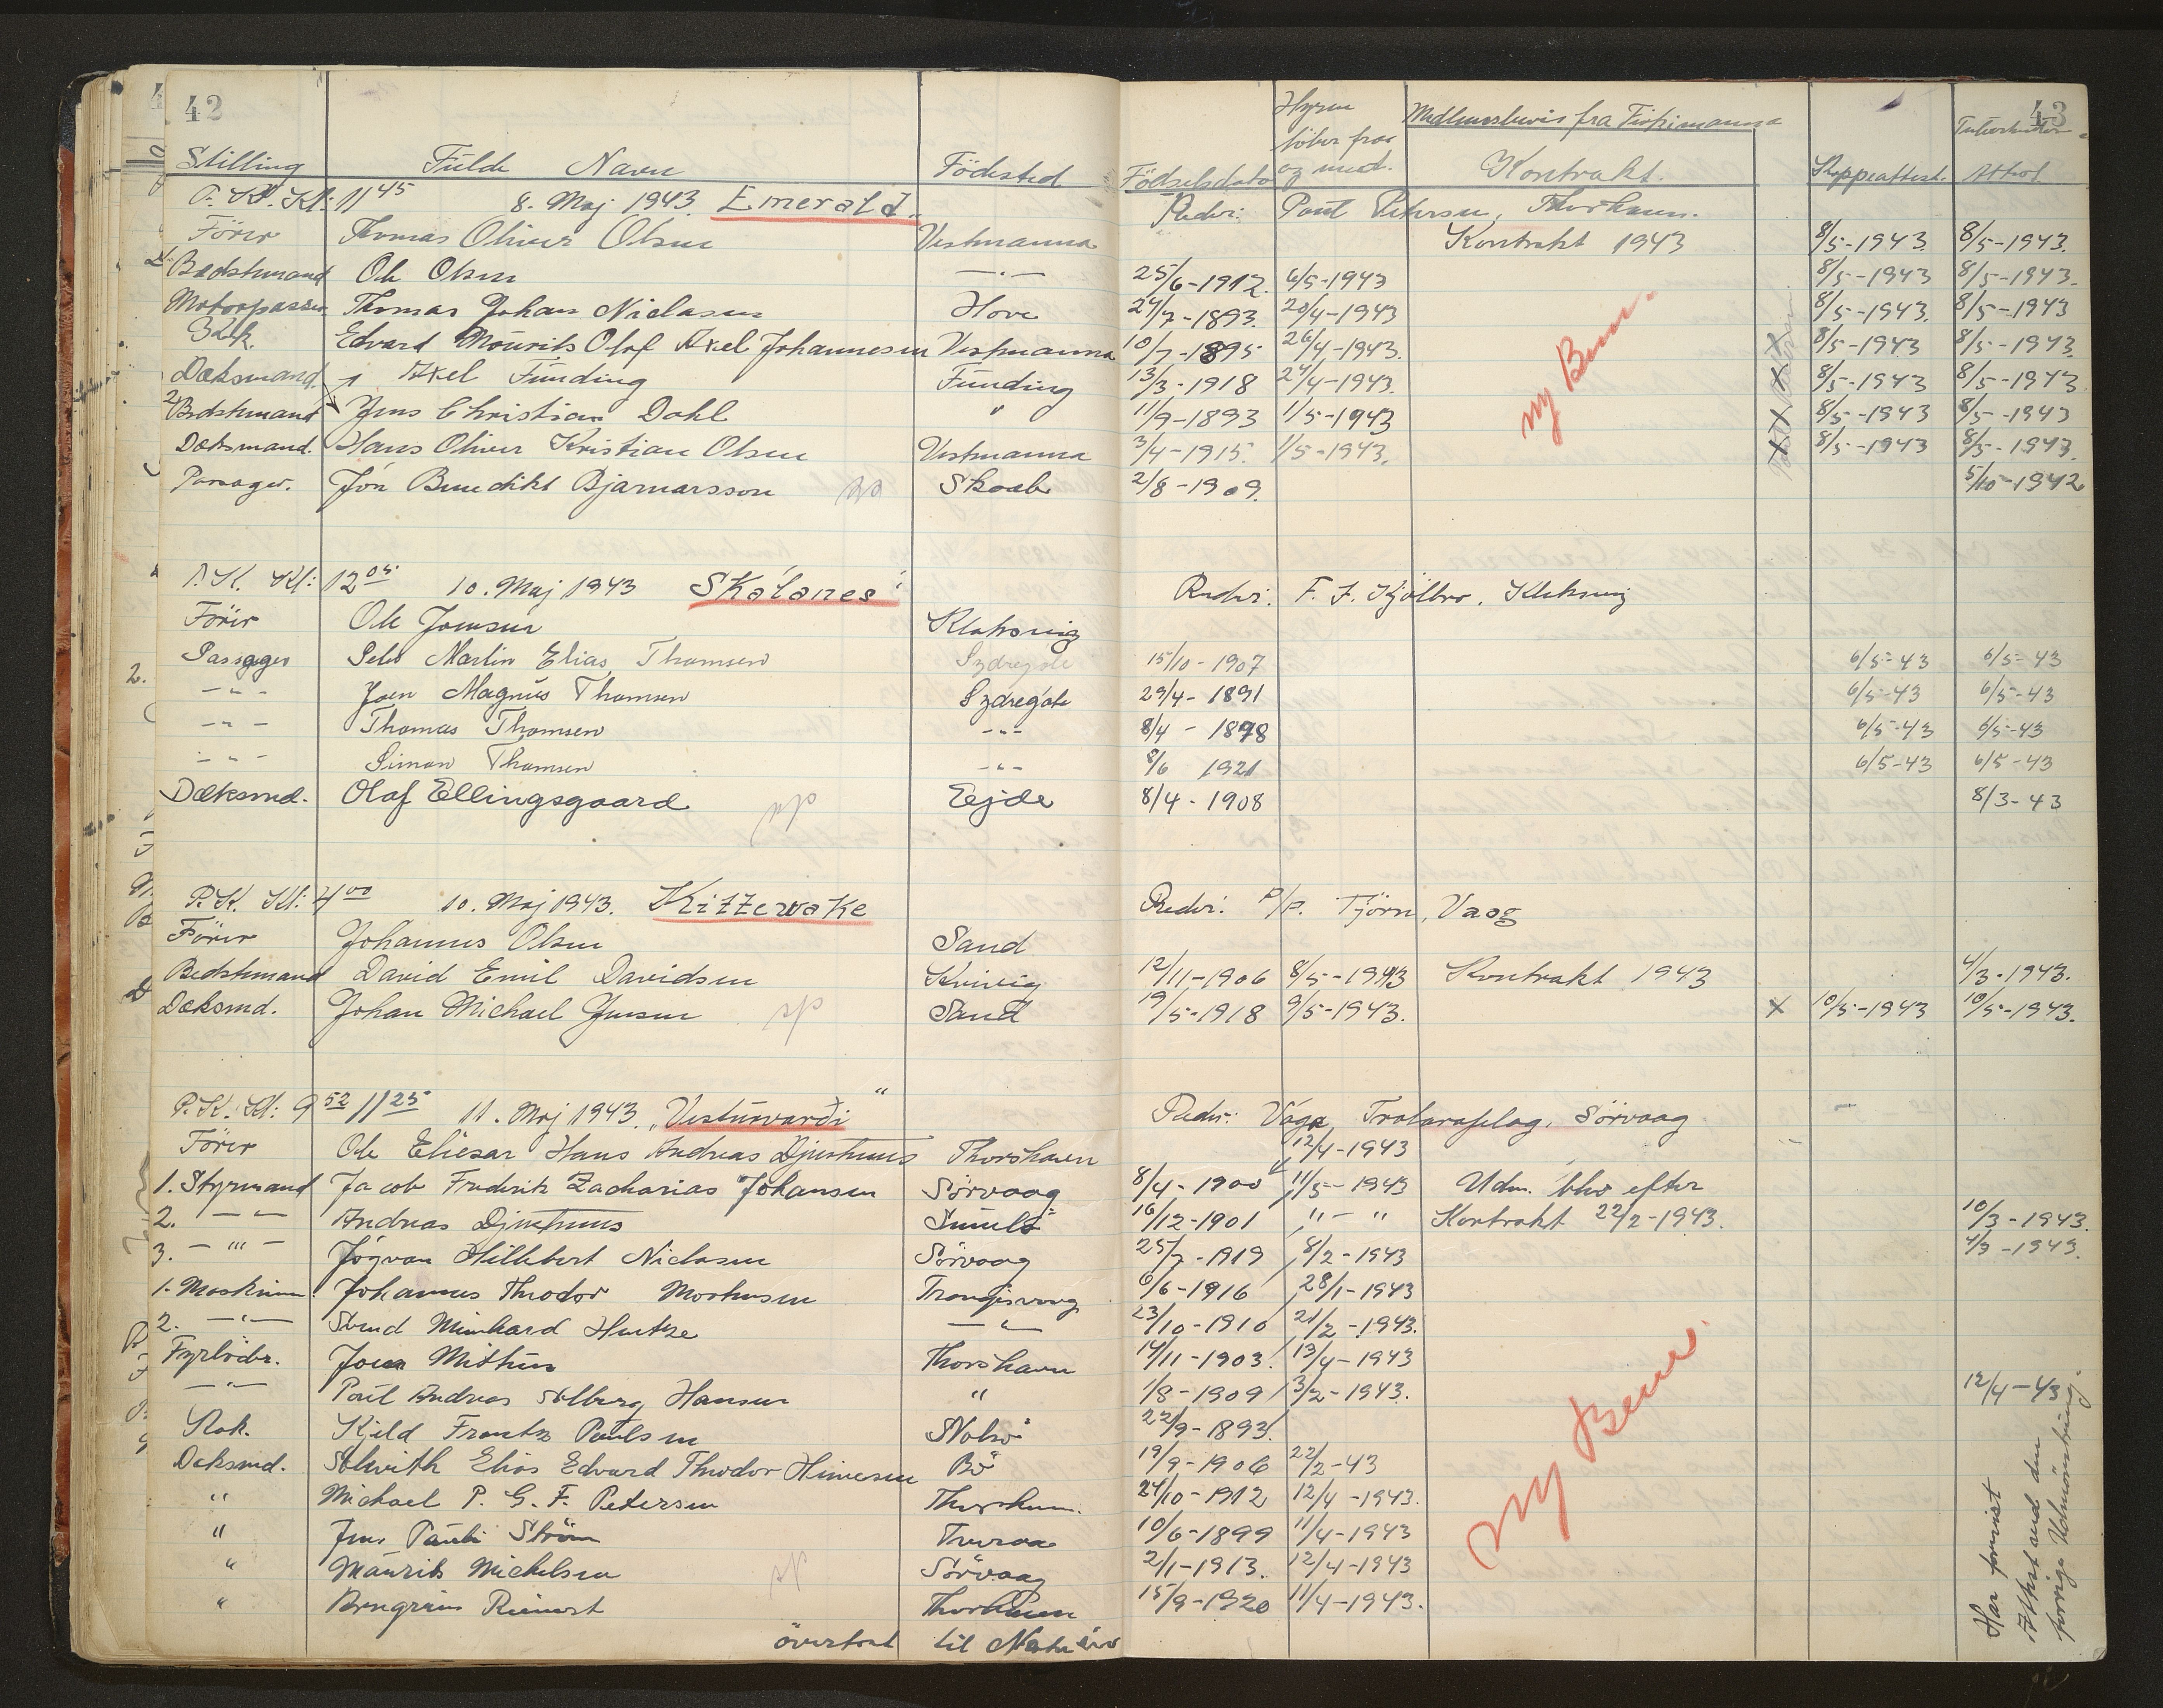 42
43
Stilling Fulde Navn Födested Födselsdato Hyren löber fra og med. Medlemsbevis fra Kontrakt. Attest
P.K. Kl: 11 45 8. Maj 1943. Emerald. Reder: Poul Petersen, Thorshavn.
Förer Thomas Oliver Olsen Vestmanna Kontrakt 1943 8/5-1943. 8/5-1943.
Bedstemand Ole Olsen —"— 25/6-1912. 6/5-1943 8/5-1943 8/5-1943.
Motorpasser Thomas Johan Niclasen Hove 24/7-1893. 20/4-1943 8/5-1943. 8/5-1943
Edvard Mourits Olof Axel Johannesen Vestmanna 10/7-1895 26/4-1943. x 8/5-1943 8/5-1943.
Dæksmand. Axel Funding Funding 13/3-1918 24/4-1943. 8/5-1943 8/5-1943.
2 Bedstemand Jens Christian Dahl " 11/9-1893 1/5-1943 x 8/5-1943 8/5-1943
Dæksmand. Hans Oliver Kristian Olsen Vestmanna 3/4-1915. 1/5-1943. x 8/5-1943 8/5-1943.
Passager. Jón Benedikt Bjarnarsson Skaale 2/8-1909. 5/10-1942
ny Bem.
P.K. Kl: 12 05 10. Maj 1943 Skálanes" Reder: F. J. Kjölbro, Klaksvig
Förer Ole Joensen Klaksvig
Passager Peter Martin Elias Thomsen Sydregöte 15/10-1907 6/5-43 6/5-43
—"— Joen Magnus Thomsen Sydregöte 29/4-1891 6/5-43 6/5-43
—"— Thomas Thomsen —"— 8/4-1898 6/5-43 6/5-43
—"— Simon Thomsen —"— 8/6 1921 6/5-43 6/5-43
Dæksmd. Olaf Ellingsgaard Ejde 8/4-1908 8/3-43
P.K. Kl: 4 00 10. Maj 1943. Kittewake Reder: P/P. Tjörn, Vaag
Förer Johannes Olsen Sand
Bedstemand David Emil Davidsen Kvivig 12/11-1906 8/5-1943 Kontrakt 1943 4/3-1943.
Dæksmd. Johan Michael Jensen Sand 19/5-1918 9/5-1943. x 10/5-1943 10/5-1943.
P.K. Kl: 9 52 11 25 11. Maj 1943. "Vesturvarði" Reder: Vága Trolarafelag, Sörvaag
Förer Ole Eliesar Hans Andreas Djurhuus Thorshavn 12/4-1943
1. Styrmand Jacob Frederik Zacharias Johansen Sörvaag 8/4-1900 11/5-1943 Udm. blev efter
2. —"— Andreas Djurhuus 16/12-1901 "-" Kontrakt 22/2-1943. 10/3-1943.
3. —"— Jógvan Hillebert Niclasen Sörvaag 25/7-1919 8/2-1943 4/3-1943.
1. Maskinm. Johannes Theodor Mortensen Trangisvaag 6/6-1916 28/1-1943
2. —"— Svend Meinhard Hentze —"— 23/10-1910 21/2-1943.
Fyrböder. Joen Mithus Thorshavn 14/11-1903. 13/4-1943
—"— Poul Andreas Solberg Hansen " 1/8-1909 3/2-1943. 12/4-43
Kok. Kjeld Frants Poulsen Nolsö 22/9-1893.
Dæksmd. Solvith Elias Edvard Theodor Himesen Bö 19/9-1906 22/2-43
" Michael P. G. F. Petersen Thorshavn. 24/10-1912 12/4-1943.
" Jens Pauli Ström Tveraa 10/6-1899 11/4-1943
" Maurits Michelsen Sörvaag 2/1-1913. 12/4-1943
" Arngrim Reinert Thorshavn 15/9-1920 11/4-1943.
overfört til
ny Bem.
Har forevist Attest ved den forrige Udmönstring.